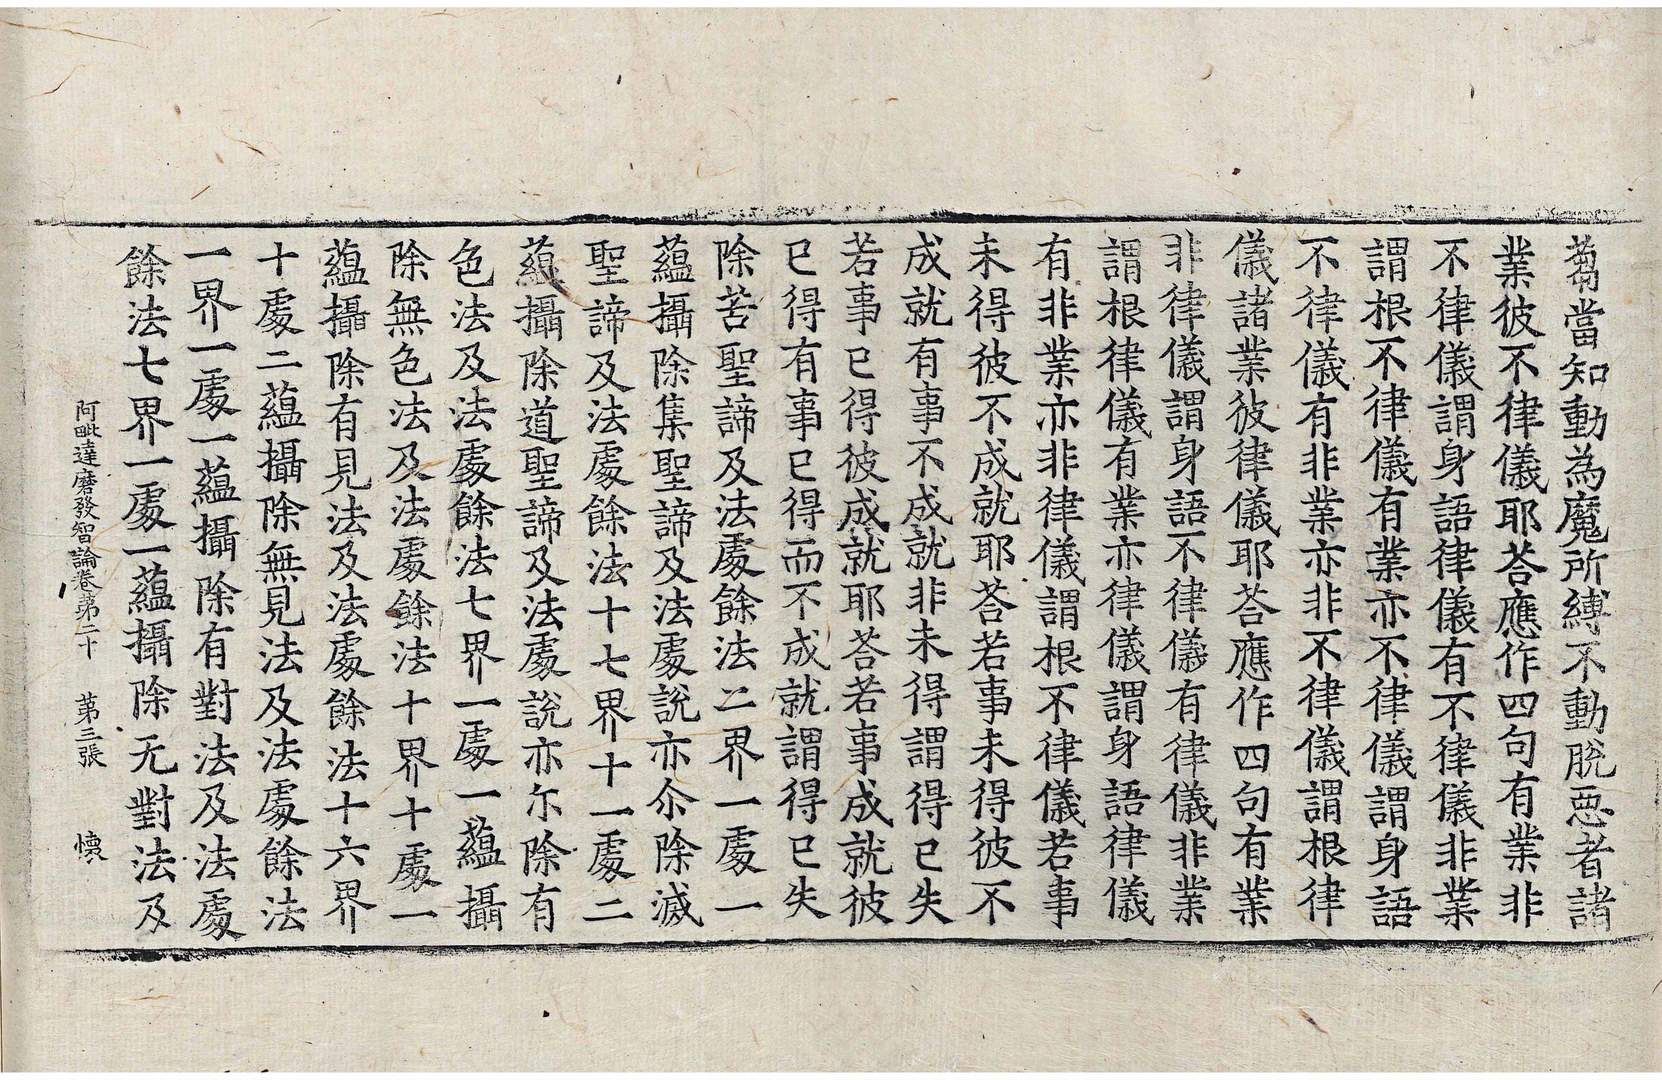 蒭當知動為魔所縛不動脫惡者諸
業彼不律儀耶荅應作四句有業非
不律儀謂身語律儀有不律儀非業
謂根不律儀有業亦不律儀謂身語
不律儀有非業亦非不律儀謂根律
儀諸業彼律儀耶荅應作四句有業
非律儀謂身語不律儀有律儀非業
謂根律儀有業亦律儀謂身語律儀
有非業亦非律儀謂根不律儀若事
未得彼不成就耶荅若事未得彼不
成就有事不成就非未得謂得已失
若事已得彼成就耶荅若事成就彼
已得有事已得而不成就謂得已失
除苦聖諦及法處餘法二界一處一
蘊攝除集聖諦及法處說亦尒除滅
聖諦及法處餘法十七界十一處二
蘊攝除道聖諦及法處說亦尓除有
色法及法處餘法七界一處一蘊攝
除無色法及法處餘法十界十處一
蘊攝除有見法及法處餘法十六界
十處二蘊攝除無見法及法處餘法
一界一處一蘊攝除有對法及法處
餘法七界一處一蘊攝除无對法及
阿毗達磨發智論卷第二十 第三張 懷